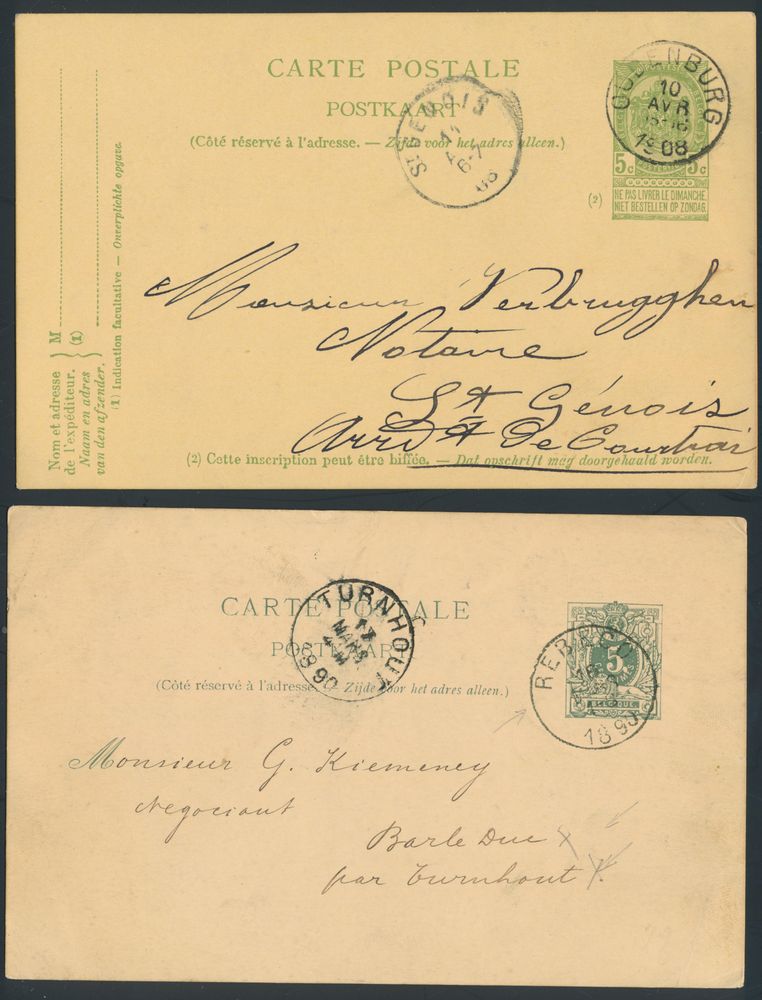 CARTE POSTALE
POSTKAART
(Côté réservé à l'adresse. — Zijde voor het adres alleen.)
OUDENBURG
10
AVR
1908
ST GENOIS
11
6-7
08
5c 5c
NE PAS LIVRER LE DIMANCHE.
NIET BESTELLEN OP ZONDAG.
(2)
M
(1)
Nom et adresse
de l'expéditeur.
Naam en adres
van den afzender.
(1) Indication facultative — Onverplichte opgave.
Monsieur Verbrugghen
Notaire
St Génois
Arrdt de Courtrai
(2) Cette inscription peut être biffée. — Dat opschrift mag doorgehaald worden.
CARTE POSTALE
POSTKAART
(Côté réservé à l'adresse. — Zijde voor het adres alleen.)
TURNHOUT
17
MARS
4-M
1890
REBECQ
5
BELGIQUE
1890
Monsieur G. Kiemeney
Negociant
Barle Duc
par Turnhout.